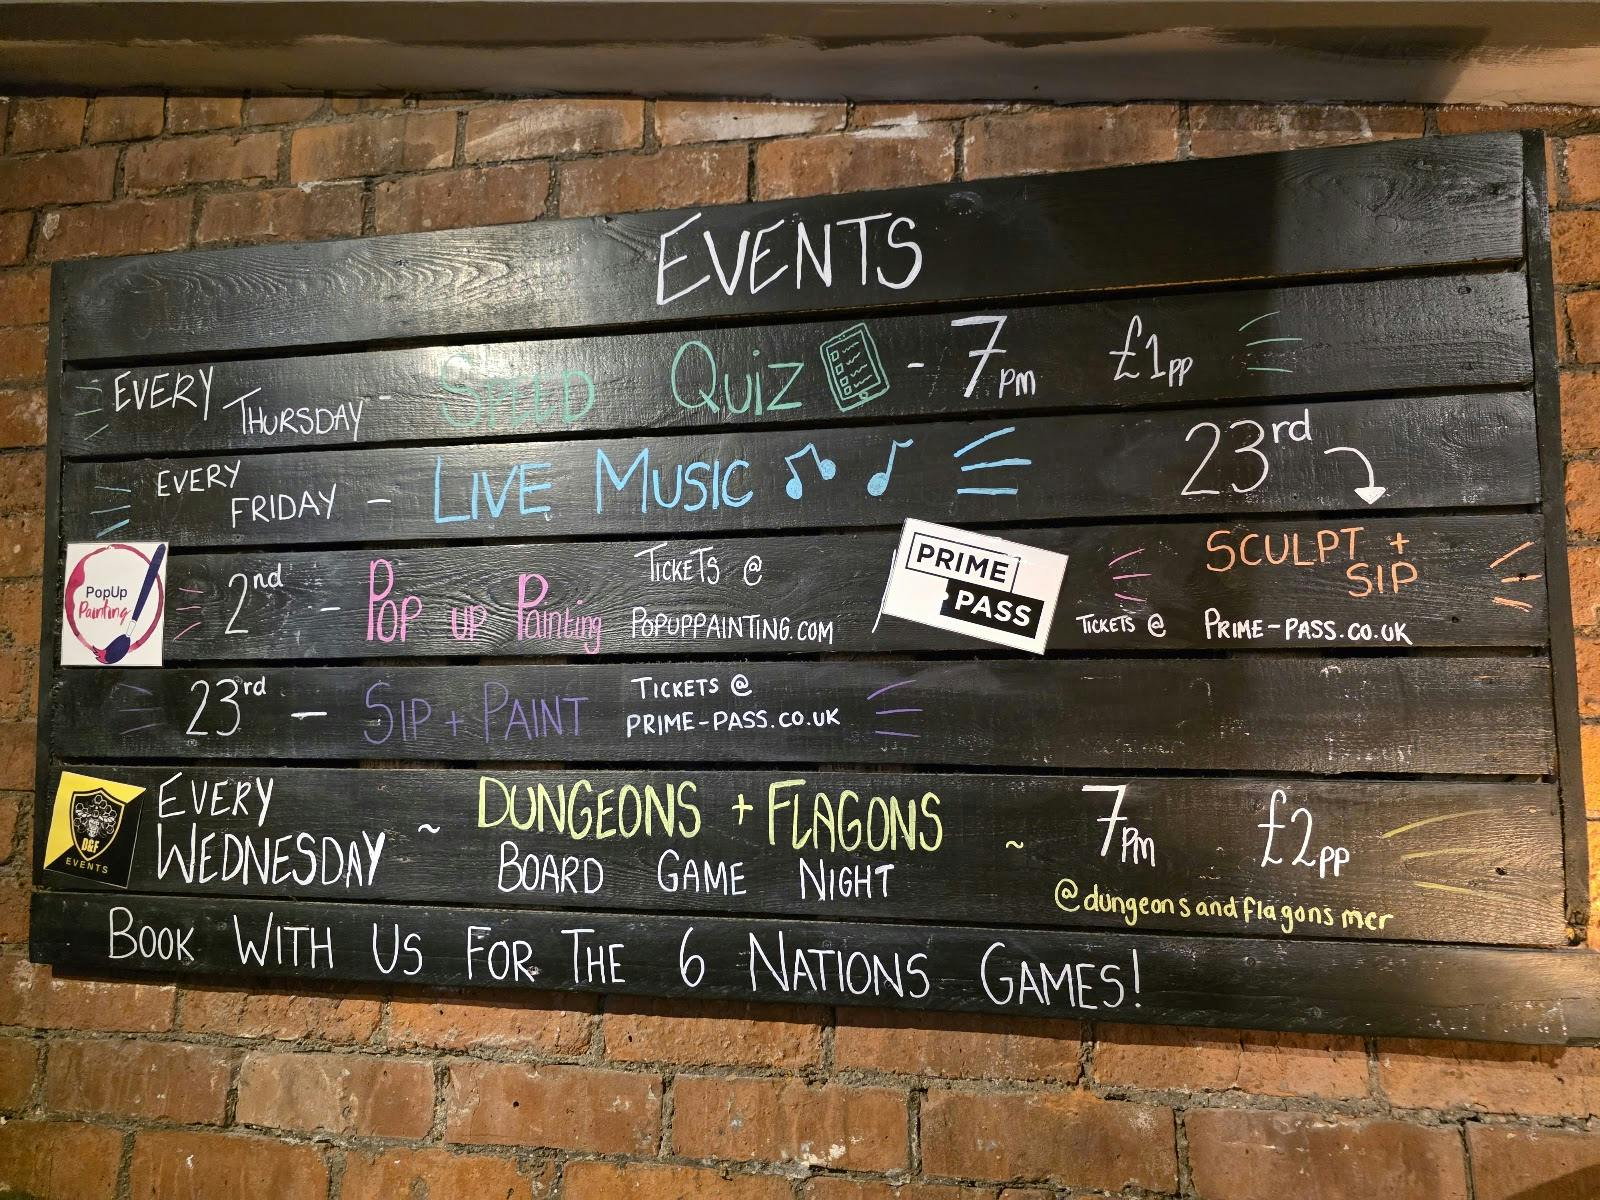 EVENTS
EVERY THURSDAY - SPEED QUIZ - 7pm £1pp
EVERY FRIDAY - LIVE MUSIC
23rd
PopUp
Painting
2nd - POP UP Painting
TICKETS @
POPUPPAINTING.COM
PRIME
PASS
SCULPT +
SIP
TICKETS @ PRIME-PASS.CO.UK
23rd - SIP + PAINT
TICKETS @
PRIME-PASS.CO.UK
D&F
EVENTS
EVERY
WEDNESDAY ~ DUNGEONS + FLAGONS ~ 7pm £2pp
BOARD GAME NIGHT
@dungeonsandflagonsmcr
BOOK WITH US FOR THE 6 NATIONS GAMES!